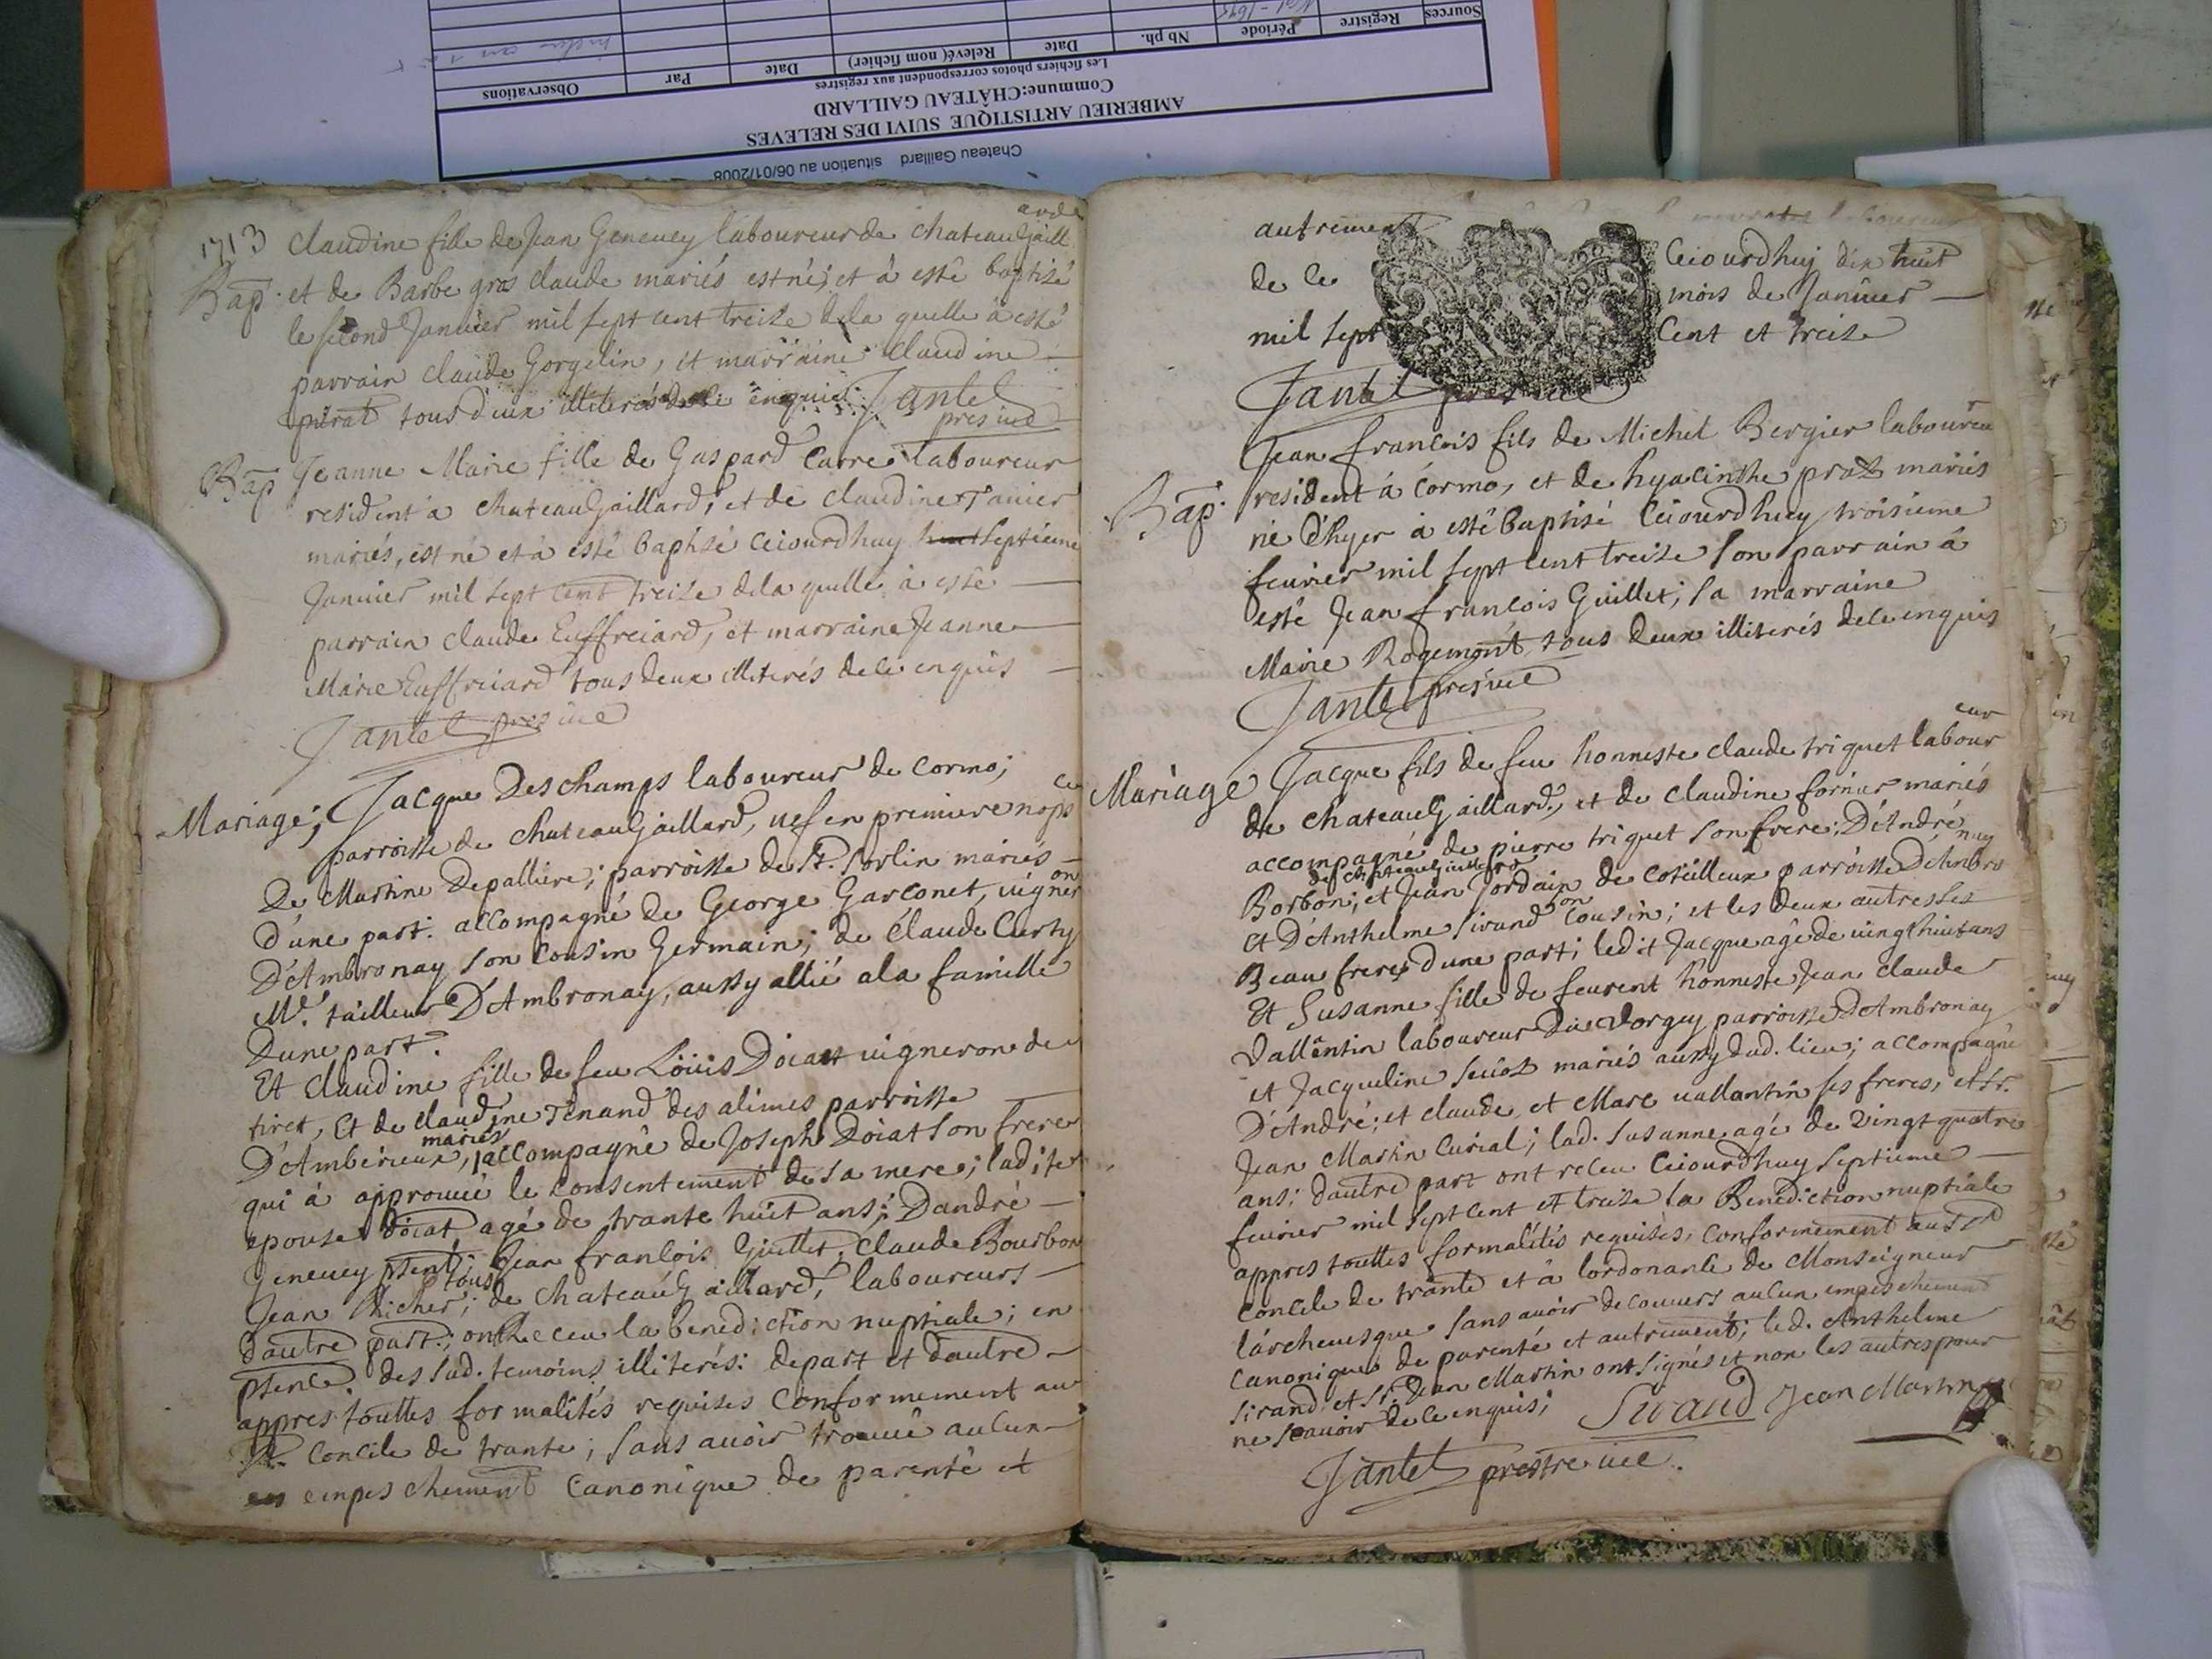 Chateau Gaillard situation au 06/01/2008
AMBERIEU ARTISTIQUE SUIVI DES RELEVES
Commune:CHÂTEAU GAILLARD
Les fichiers photos correspondent aux registres
Sources Registre Période Nb ph. Date Relevé( nom fichier) Date Par Observations
1713
claudine fille de Jean Geneuey laboureur de chateauGaillard
Bap. et de Barbe gros claude mariés est né; et à esté baptisé
le second Januier mil sept cent treise dela quelle à esté
parrain claude Gorgelin, et marraine claudine
perat tous deux illiterés de ce enquis Jantet
pres uic
Bap Jeanne Marie fille de Gaspard Carre laboureur
resident à chateauGaillard, et de claudine Tanier
mariés, est né et à esté baptisé ceiourdhuy huit septieme
Januier mil sept cent treise dela quelle à esté
parrain claude Euffreiard, et marraine Jeanne
Marie Euffreiard tous deux illiterés de ce enquis
Jantet pres uic
Mariage; Jacque Deschamps laboureur de cormo;
parroisse de chateauGaillard, uef en premiere nopce
De Martine Depalliere; parroisse de St. Sorlin mariés
d'une part. accompagné de George Garconet, uigneron
D'Ambronay son cousin Germain; de Claude Curty
Mr. tailleur D'Ambronay, aussy allié a la famille
Dune part.
Et Claudine fille de feu Loüis Doiat uigneron de
tiret, Et de claudine Tenand des alimes parroisse
D'Amberieux, mariés accompagné de Joseph Doiat son frere
qui à approuué le consentement de sa mere; ladite
epouse Doiat agé de trante huit ans; D'andré
Geneuey ptent; Jean francois Guillet; Claude Bourbon
Jean Richer; tous de chateauGaillard, laboureurs
dautre part; ont receu la benediction nuptiale; en
ptence des sud. temoins illiterés: depart et dautre
appres touttes formalités requises conformement au
St. concile de trante; sans auoir trouué aucun
empeschement canonique de parenté et
autrement
ceiourdhuy dix huit
de ce mois de Januier
mil sept cent et treise
Jantet pres uic
Jean francois fils de Michel Bergier laboureur
Bap. resident à cormo, et de hyacinthe prat mariés
né d'hyer à esté baptisé ceiourdhuy troisieme
feurier mil sept cent treise son parrain à
esté Jean francois Guillet; sa marraine
Marie Rogemont tous deux illiterés de ce enquis
Jantet pres uic
Mariage Jacque fils de feu honneste claude triquet laboureur
de chateauGaillard, et de claudine fornier mariés
accompagné de pierre triquet son frere; D'André
Borbon; de chateauGaillard et Jean Jordain de coteilleux parroisse D'Ambronay
et D'Anthelme Sirand son cousin; et les deux autres ses
Beau freres d'une part; ledit Jacque agé de uingt huit ans
Et Susanne fille de feurent honneste Jean claude
Vallentin laboureur Du Vorgey parroisse D'Ambronay
et Jacqueline seuoz mariés aussy dud. lieu; accompagné
D'André; et claude et Marc uallantin ses freres, et sr.
Jean Martin Curial; lad. Susanne agé de Vingt quatre
ans; dautre part ont receu Ceiourdhuy septieme
feurier mil sept cent et treise la Benediction nuptiale
appres touttes formalités requises, conformement au St
concile de trante et à lordonance de Monseigneur
larcheuesque sans auoir decouuers aucun empeschement
canonique de parenté et autrement; led. Anthelme
sirand et sr. Jean Martin ont signés et non les autres pour
ne scauoir de ce enquis;
Siraud Jean Martin
Jantet prestre uic.